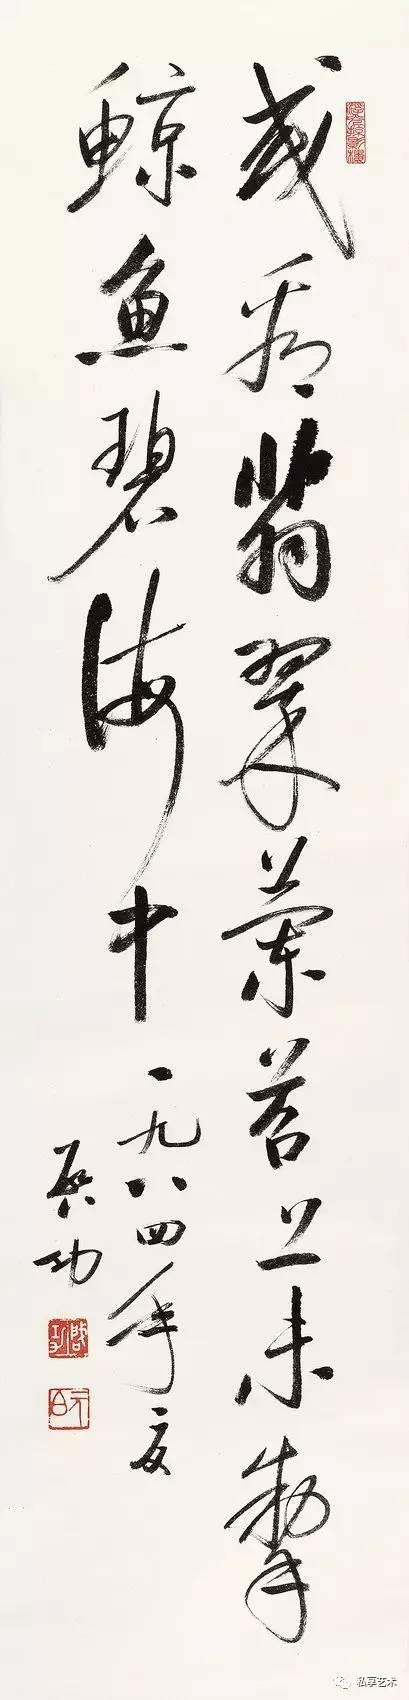 或看翡翠蘭苕上未掣
鲸鱼碧海中
一九八四年夏
启功
啟功
元白
私享艺术